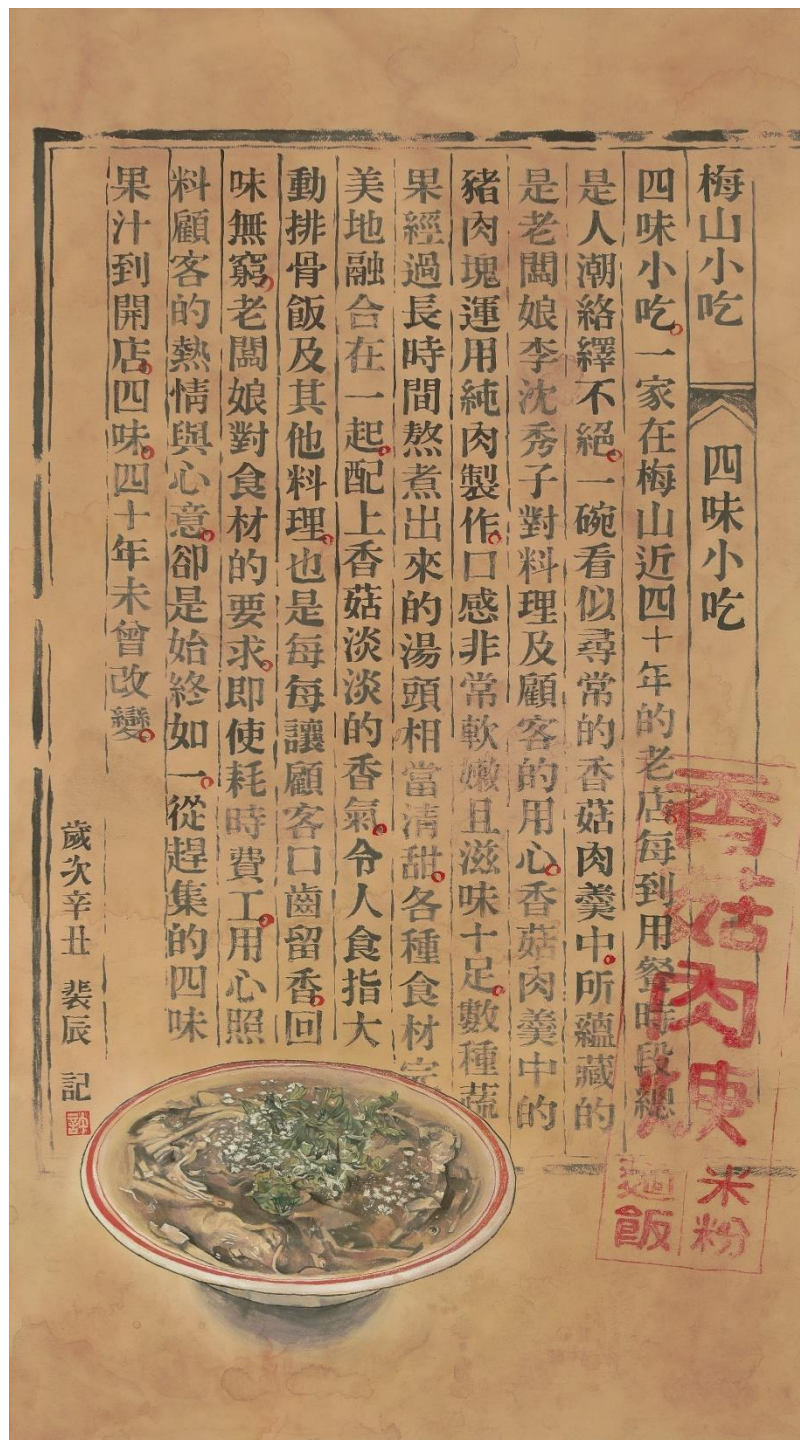 梅山小吃 四味小吃
四味小吃。一家在梅山近四十年的老店每到用餐時段總
是人潮絡繹不絕。一碗看似尋常的香菇肉羹中。所蘊藏的
是老闆娘李沈秀子對料理及顧客的用心。香菇肉羹中的
豬肉塊運用純肉製作。口感非常軟嫩且滋味十足。數種蔬
果經過長時間熬煮出來的湯頭相當清甜。各種食材完
美地融合在一起。配上香菇淡淡的香氣。令人食指大
動排骨飯及其他料理。也是每每讓顧客口齒留香。回
味無窮。老闆娘對食材的要求。即使耗時費工。用心照
料顧客的熱情與心意。卻是始終如一。從趕集的四味
果汁到開店。四味。四十年未曾改變。
歲次辛丑 裴辰 記
香菇肉焿
米粉
麵飯